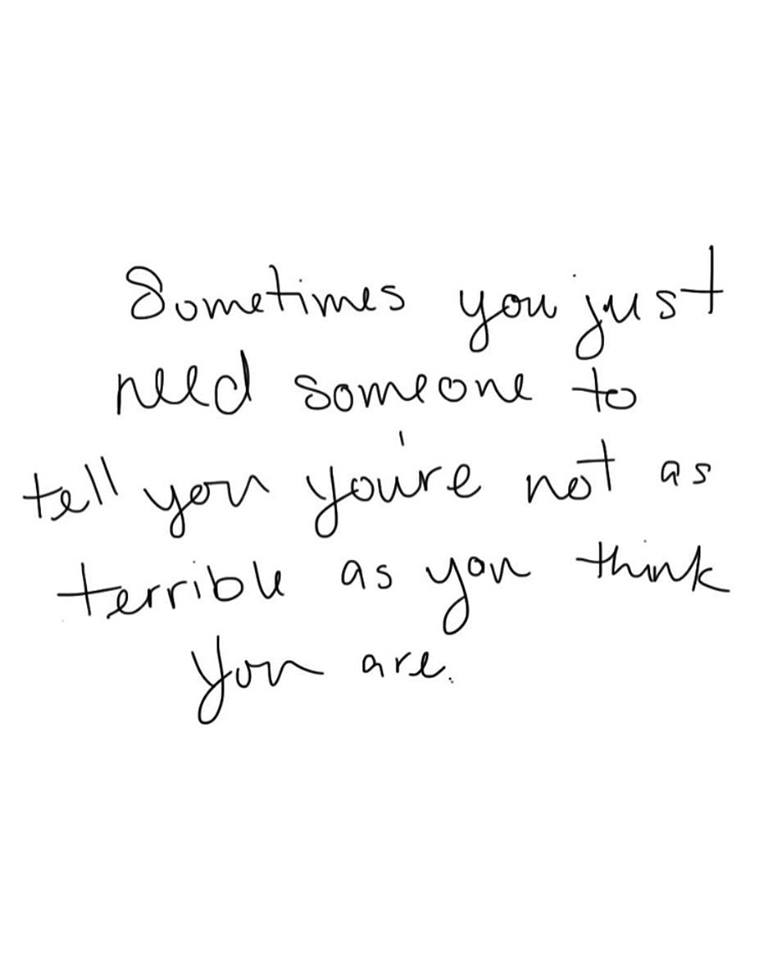 Sometimes you just
need someone to
tell you you're not as
terrible as you think
you are.